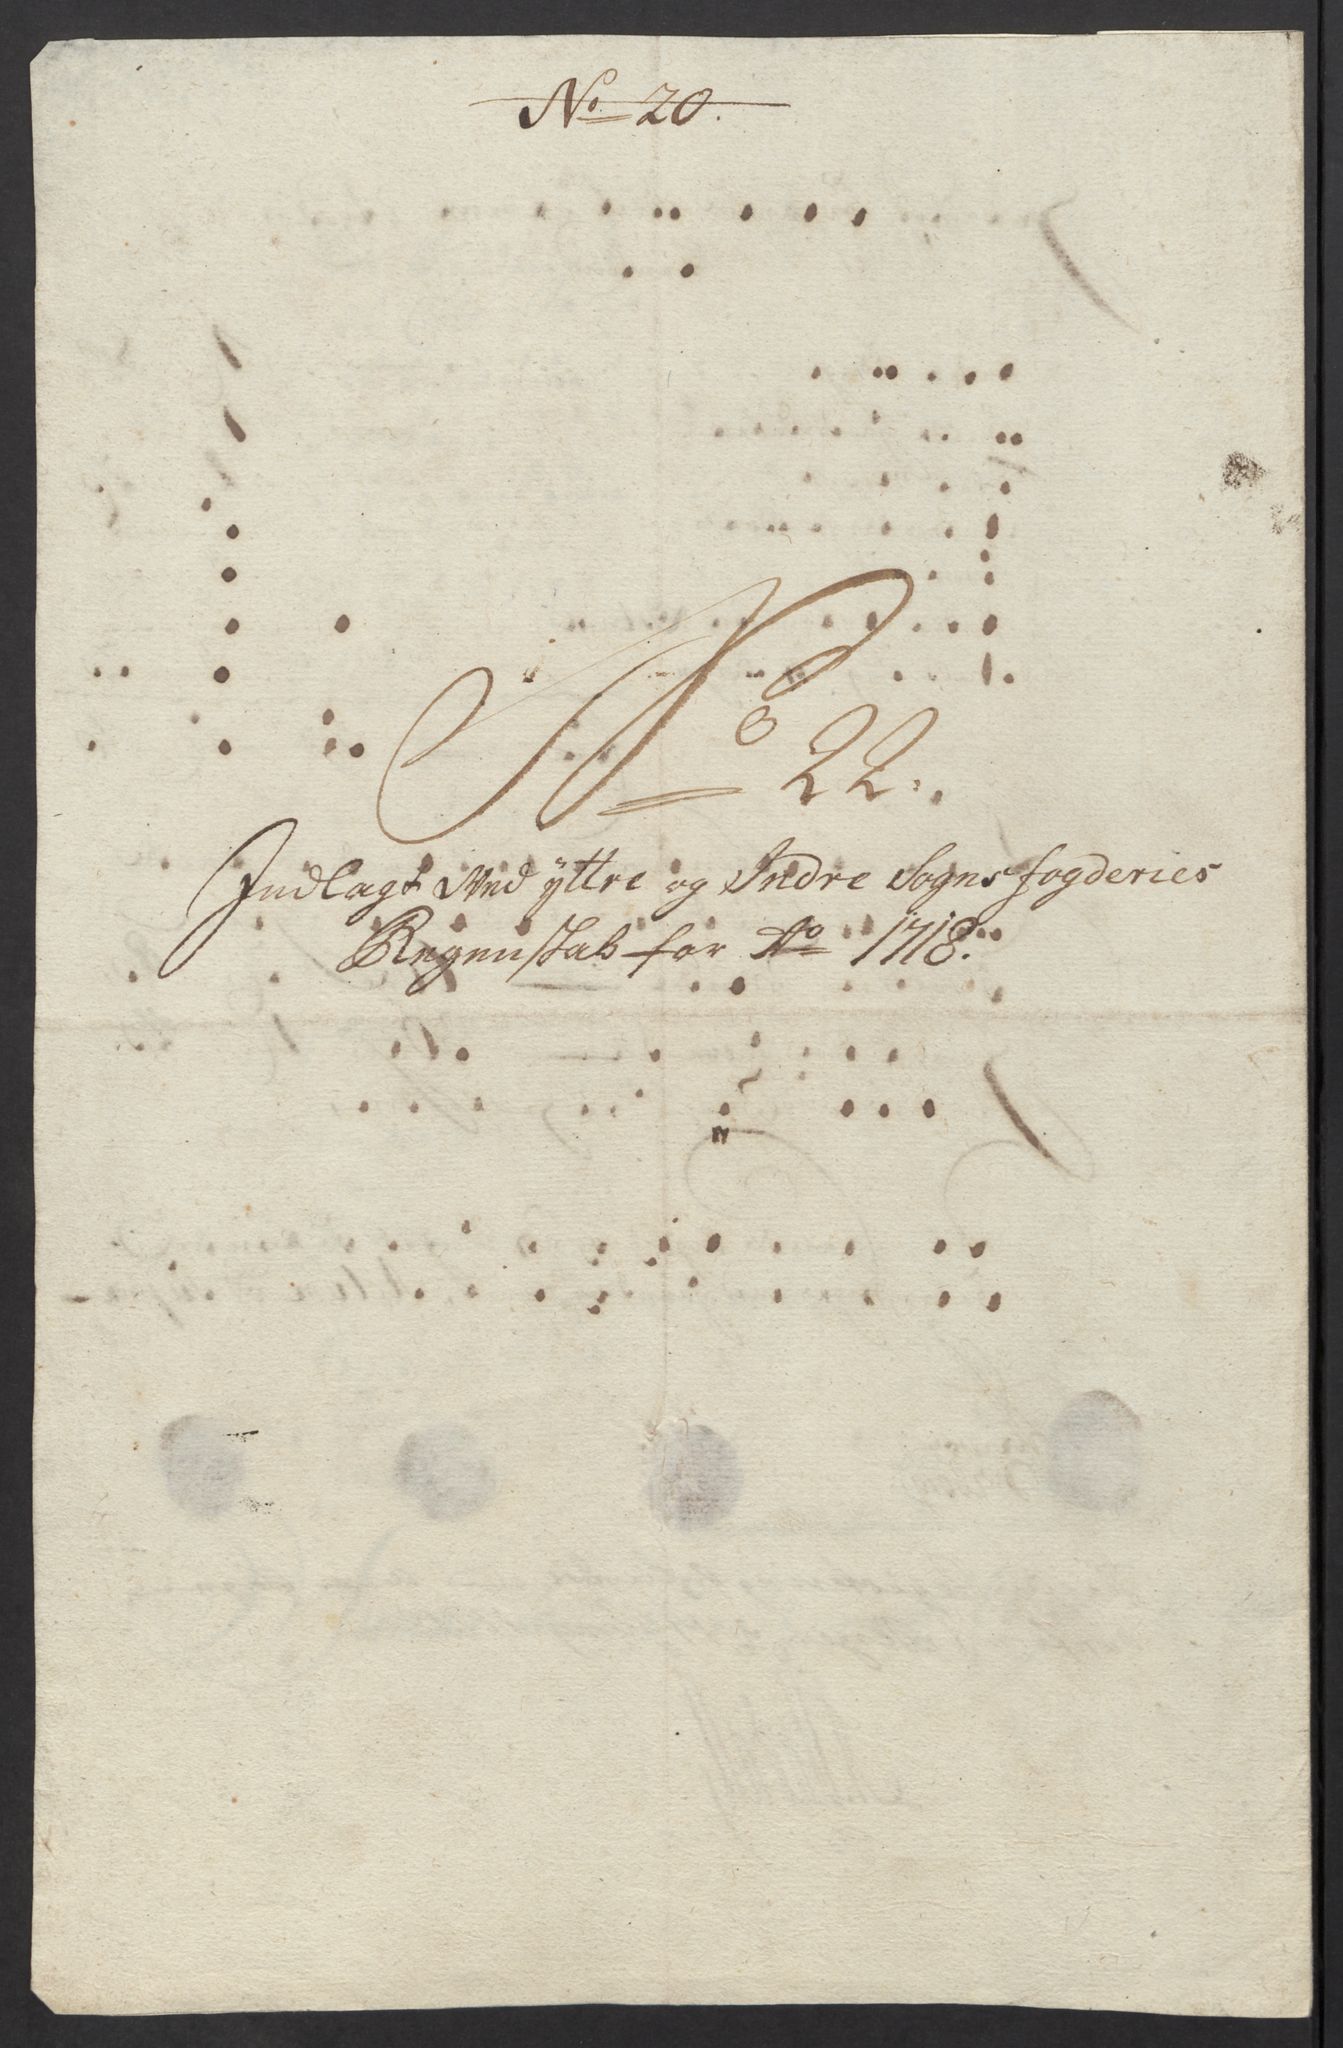 No 20.
No 22.
Indlagt Ved ÿttre og Indre Sogns fogderies
Regenskab for Ao 1718.